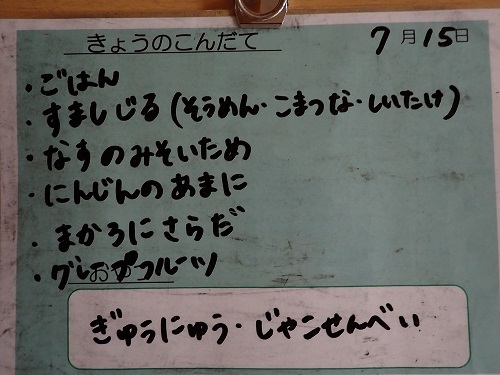 きょうのこんだて 7月15日
・ごはん
・すましじる(そうめん・こまつな・しいたけ)
・なすのみそいため
・にんじんのあまに
・まかろにさらだ
・グレープフルーツ
おやつ
ぎゅうにゅう・じゃこせんべい